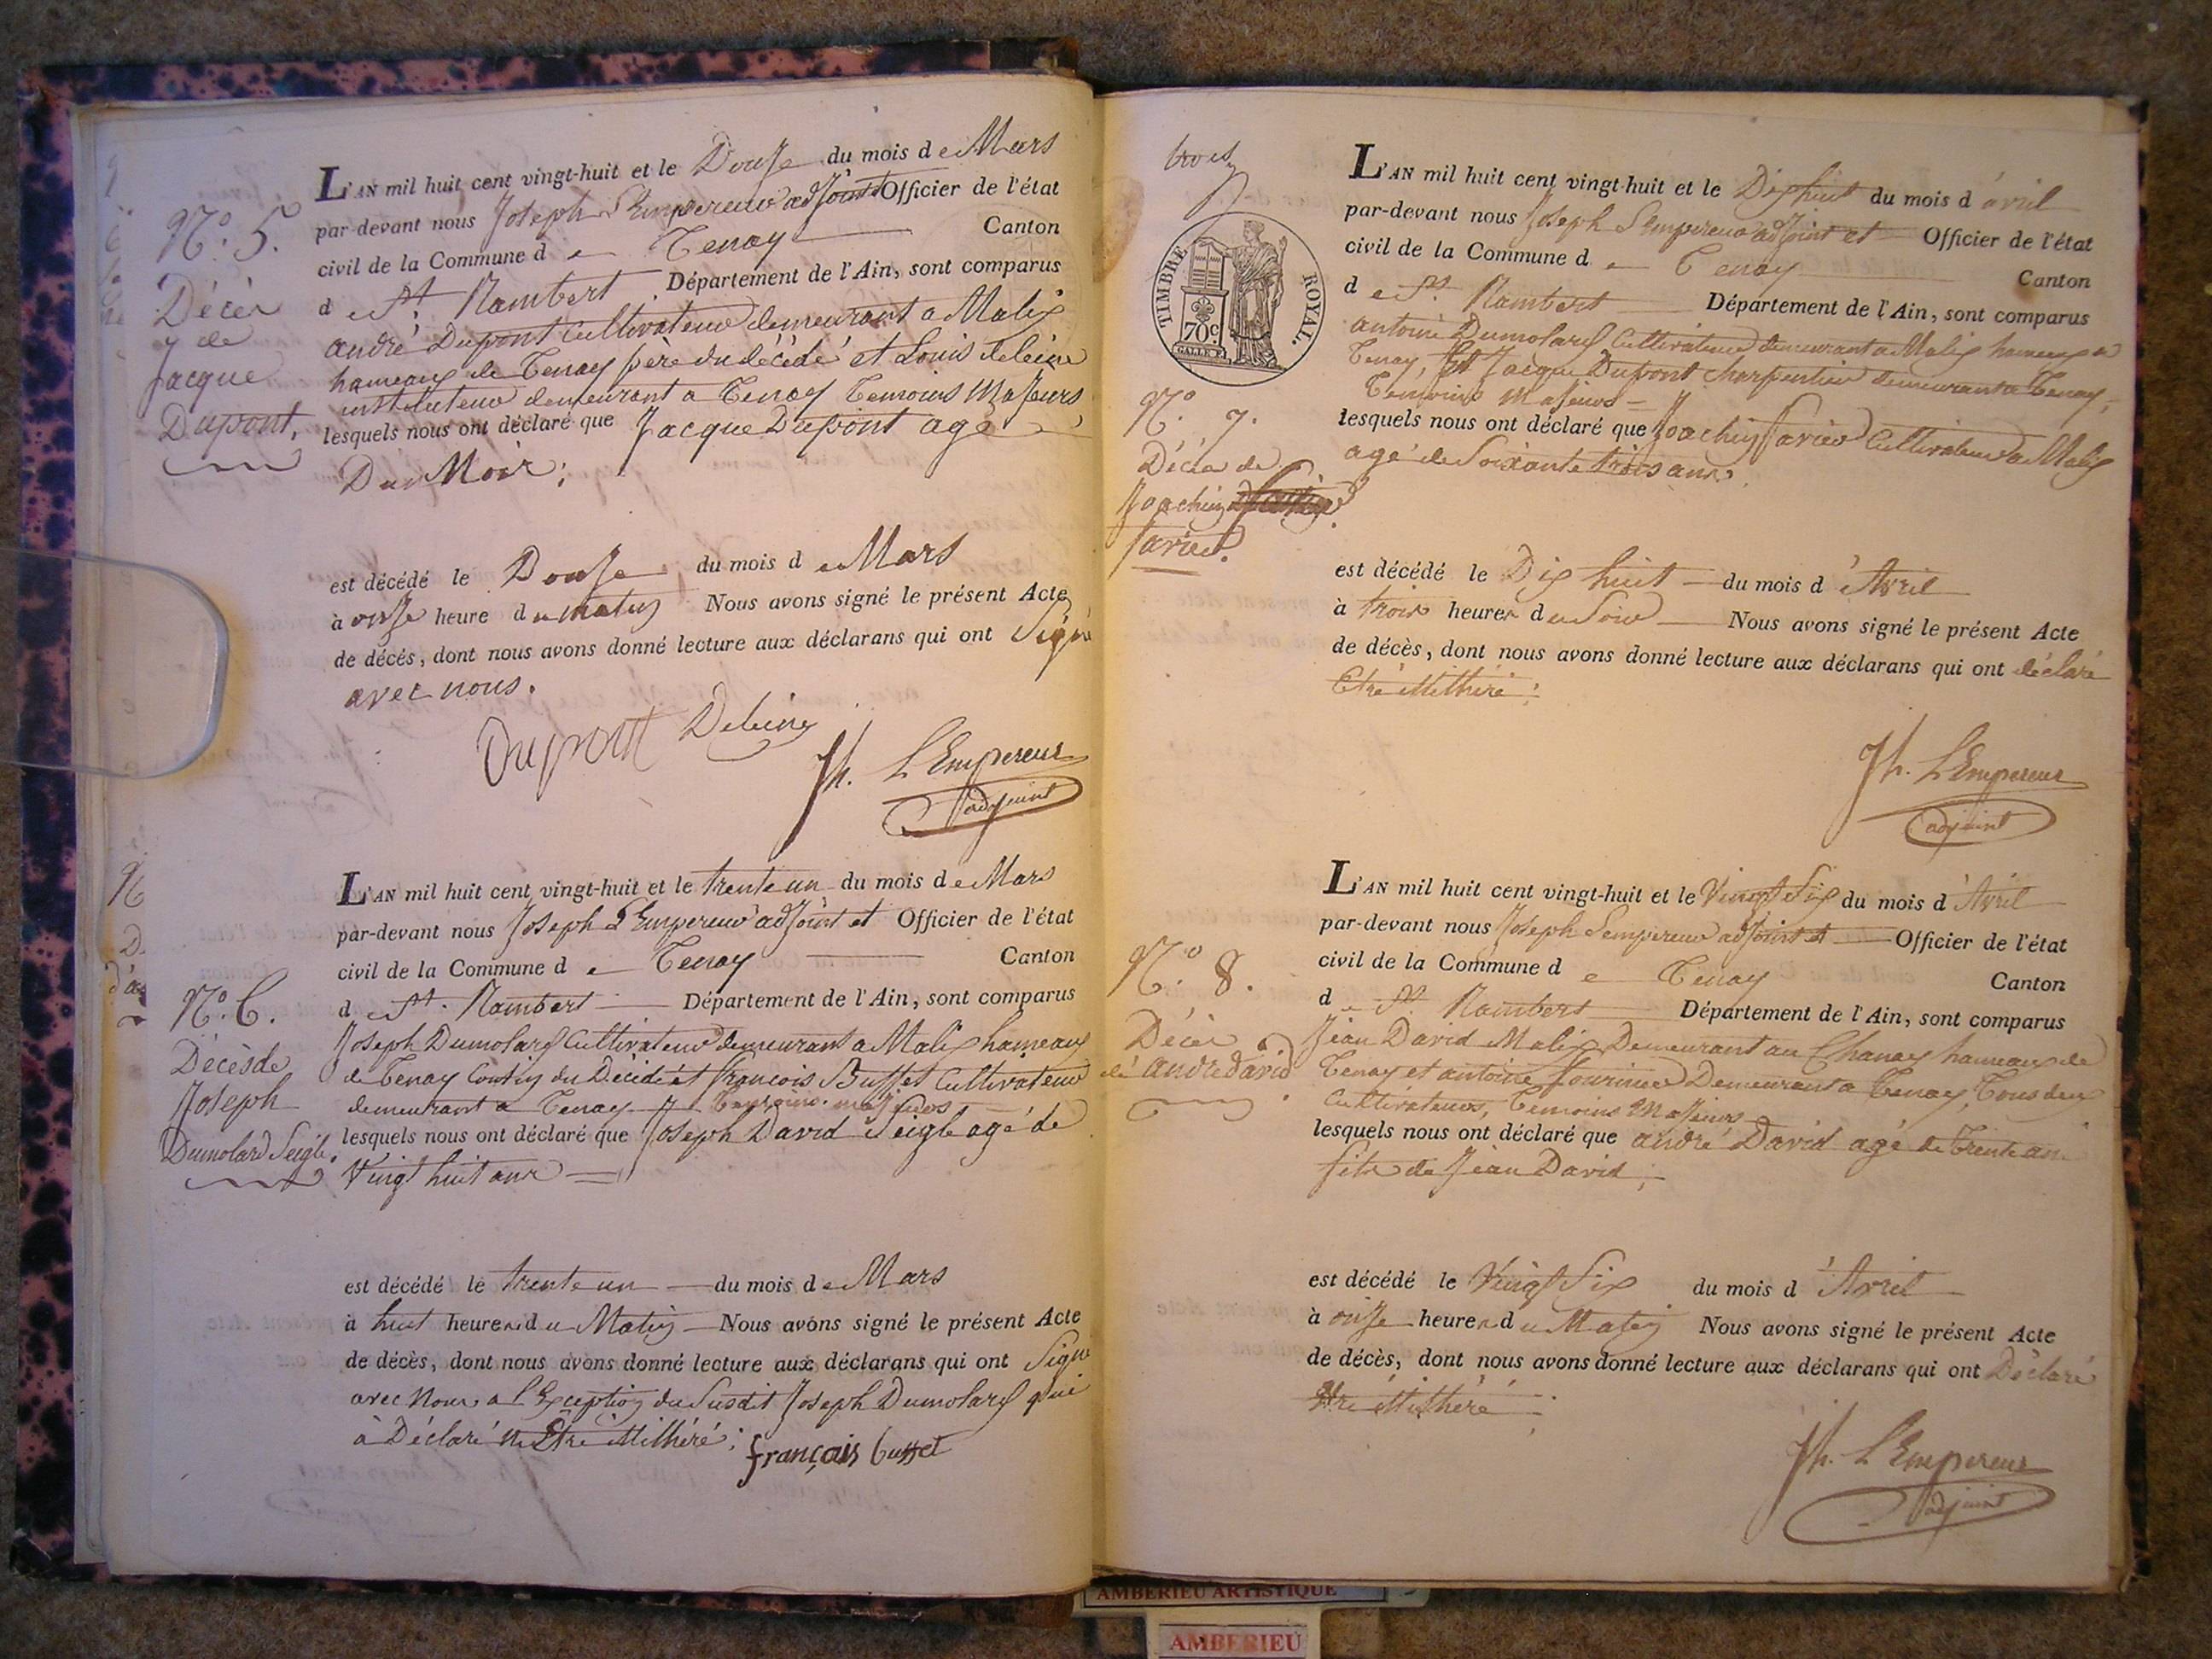 L'AN mil huit cent vingt-huit et le Douse du mois de Mars
par-devant nous Joseph L'Empereur adjoint et Officier de l'état
civil de la Commune de Tenay Canton
de St. Rambert Département de l'Ain, sont comparus
andré Dupont Cultivateur demeurant a Malix
hameaux de Tenay père du décédé et Louis Deleine
instituteur demeurant a Tenay Temoins Majeurs
lesquels nous ont déclaré que Jacque Dupont agé
Du Moir;
N.º 5.
Décès
de
Jacque
Dupont,
est décédé le Douse du mois de Mars
à onse heure du matin Nous avons signé le présent Acte
de décés, dont nous avons donné lecture aux déclarans qui ont Signé
avec nous.
Dupont Deleine
Jh. L'Empereur
adjoint
L'AN mil huit cent vingt-huit et le trente un du mois de Mars
par-devant nous Joseph L'Empereur adjoint et Officier de l'état
civil de la Commune de Tenay Canton
de St. Rambert Département de l'Ain, sont comparus
Joseph Dumolard Cultivateur demeurant a Malix hameaux
de Tenay Contin du Décidé et francois Buffet Cultivateur
demeurant a Tenay Temoins majeurs
lesquels nous ont déclaré que Joseph David Seigle agé de
Vingt huit ans
N.º 6.
Décès de
Joseph
Dumolard Seigle.
est décédé le trente un du mois de Mars
à huit heures du Matin Nous avons signé le présent Acte
de décès, dont nous avons donné lecture aux déclarans qui ont Signé
avec Nous a l'Exception du Susdit Joseph Dumolard qui
à Déclaré n'Etre illithéré;
français buffet
trois
TIMBRE ROYAL.
70c
L'AN mil huit cent vingt-huit et le Dix huit du mois d'avril
par-devant nous Joseph L'empereur adjoint et Officier de l'état
civil de la Commune de Tenay Canton
de St. Rambert Département de l'Ain, sont comparus
antoine Dumolard Cultivateur demeurant a Malix hameux a
Tenay, Et Jacque Dupont charpentier demeurant a Tenay,
Temoins Majeurs
lesquels nous ont déclaré que Joachin Savier Cultivateur a Malix
agé de Soixante trois ans
N.º 7.
Décès de
Joachin
Savier.
est décédé le Dix huit du mois d'Avril
à trois heures du Soir Nous avons signé le présent Acte
de décès, dont nous avons donné lecture aux déclarans qui ont déclaré
Etre illithéré;
Jh. L'Empereur
adjoint
L'AN mil huit cent vingt-huit et le Vingt Six du mois d'Avril
par-devant nous Joseph Lempereur adjoint et Officier de l'état
civil de la Commune de Tenay Canton
de St. Rambert Département de l'Ain, sont comparus
Jean David Malix Demeurant au Chanay hameaux de
Tenay et antoine fournier Demeurant a Tenay, Tous deux
Cultivateurs, Temoins Majeurs
lesquels nous ont déclaré que andré David agé de Trente ans
fils de Jean David;
N.º 8.
Décès
de andre david
est décédé le Vingt Six du mois d'Avril
à onse heures du Matin Nous avons signé le présent Acte
de décès, dont nous avons donné lecture aux déclarans qui ont Déclaré
Etre illithéré
Jh. L'Empereur
adjoint
AMBERIEU ARTISTIQUE
AMBERIEU